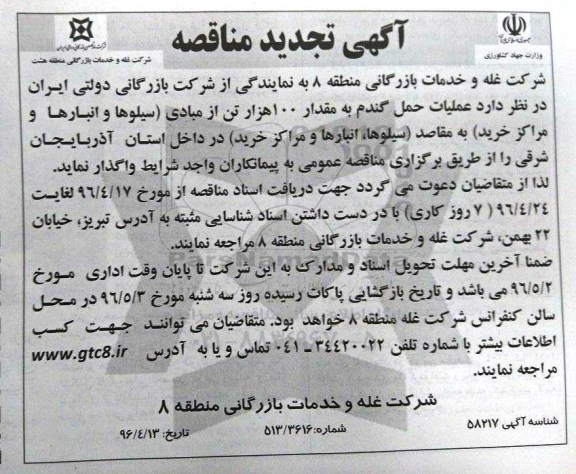 جمهوری اسلامی ایران
وزارت جهاد کشاورزی
آگهی تجدید مناقصه
شرکت غله و خدمات بازرگانی منطقه هشت
شرکت غله و خدمات بازرگانی منطقه ۸ به نمایندگی از شرکت بازرگانی دولتی ایران
در نظر دارد عملیات حمل گندم به مقدار ۱۰۰هزار تن از مبادی (سیلوها و انبارها و
مراکز خرید) به مقاصد (سیلوها، انبارها و مراکز خرید) در داخل استان آذربایجان
شرقی را از طریق برگزاری مناقصه عمومی به پیمانکاران واجد شرایط واگذار نماید.
لذا از متقاضیان دعوت می گردد جهت دریافت اسناد مناقصه از مورخ ۹۶/۴/۱۷ لغایت
۹۶/۴/۲۴ (۷ روز کاری) با در دست داشتن اسناد شناسایی مثبته به آدرس تبریز، خیابان
۲۲ بهمن، شرکت غله و خدمات بازرگانی منطقه ۸ مراجعه نمایند.
ضمنا آخرین مهلت تحویل اسناد و مدارک به این شرکت تا پایان وقت اداری مورخ
۹۶/۵/۲ می باشد و تاریخ بازگشایی پاکات رسیده روز سه شنبه مورخ ۹۶/۵/۳ در محل
سالن کنفرانس شرکت غله منطقه ۸ خواهد بود. متقاضیان می توانند جهت کسب
اطلاعات بیشتر با شماره تلفن ۳۴۴۲۰۰۲۲ ـ ۰۴۱ تماس و یا به آدرس www.gtc8.ir
مراجعه نمایند.
شرکت غله و خدمات بازرگانی منطقه ۸
شناسه آگهی ۵۸۲۱۷
شماره:۵۱۳/۳۶۱۶
تاریخ: ۹۶/۴/۱۳
ParsNamadData